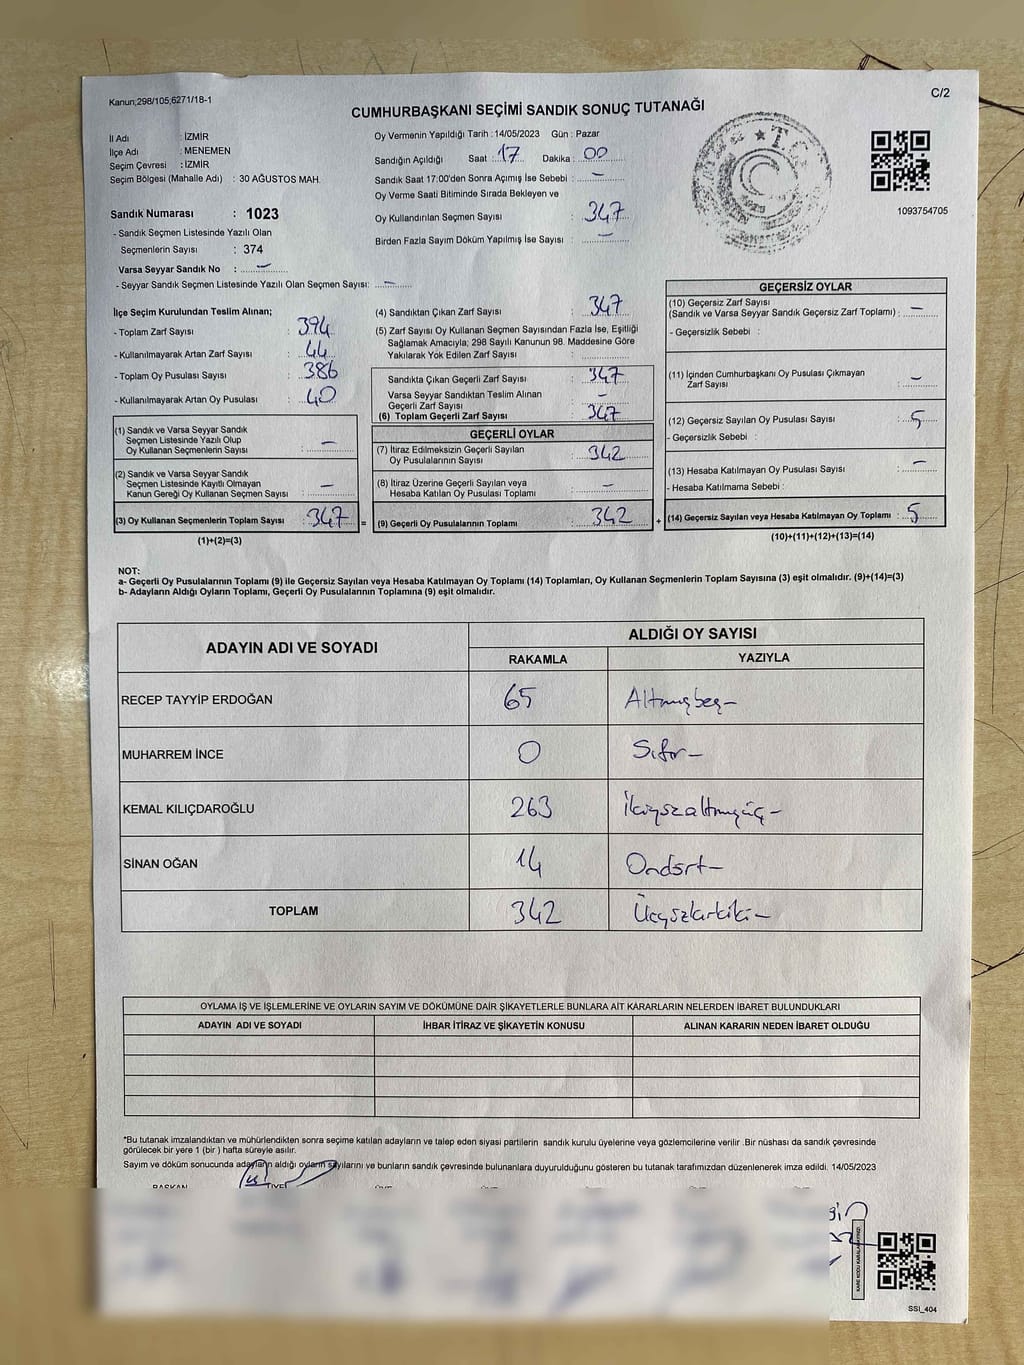 Kanun;298/105;6271/18-1
C/2
CUMHURBAŞKANI SEÇİMİ SANDIK SONUÇ TUTANAĞI
İl Adı : İZMİR
İlçe Adı : MENEMEN
Seçim Çevresi : İZMİR
Seçim Bölgesi (Mahalle Adı) : 30 AĞUSTOS MAH.
Sandık Numarası : 1023
- Sandık Seçmen Listesinde Yazılı Olan
Seçmenlerin Sayısı : 374
Varsa Seyyar Sandık No : –
- Seyyar Sandık Seçmen Listesinde Yazılı Olan Seçmen Sayısı: –
Oy Vermenin Yapıldığı Tarih :14/05/2023 Gün : Pazar
Sandığın Açıldığı Saat : 17 Dakika : 00
Sandık Saat 17:00'den Sonra Açımış İse Sebebi : –
Oy Verme Saati Bitiminde Sırada Bekleyen ve
Oy Kullandırılan Seçmen Sayısı : 347
Birden Fazla Sayım Döküm Yapılmış İse Sayısı : –
T.C.
1093754705
İlçe Seçim Kurulundan Teslim Alınan;
- Toplam Zarf Sayısı : 394
- Kullanılmayarak Artan Zarf Sayısı : 44
- Toplam Oy Pusulası Sayısı : 386
- Kullanılmayarak Artan Oy Pusulası : 40
(1) Sandık ve Varsa Seyyar Sandık
Seçmen Listesinde Yazılı Olup
Oy Kullanan Seçmenlerin Sayısı : –
(2) Sandık ve Varsa Seyyar Sandık
Seçmen Listesinde Kayıtlı Olmayan
Kanun Gereği Oy Kullanan Seçmen Sayısı : –
(3) Oy Kullanan Seçmenlerin Toplam Sayısı : 347 =
(1)+(2)=(3)
(4) Sandıktan Çıkan Zarf Sayısı : 347
(5) Zarf Sayısı Oy Kullanan Seçmen Sayısından Fazla İse, Eşitliği
Sağlamak Amacıyla; 298 Sayılı Kanunun 98. Maddesine Göre
Yakılarak Yok Edilen Zarf Sayısı :
Sandıkta Çıkan Geçerli Zarf Sayısı : 347
Varsa Seyyar Sandıktan Teslim Alınan
Geçerli Zarf Sayısı : –
(6) Toplam Geçerli Zarf Sayısı : 347
GEÇERLİ OYLAR
(7) İtiraz Edilmeksizin Geçerli Sayılan
Oy Pusulalarının Sayısı : 342
(8) İtiraz Üzerine Geçerli Sayılan veya
Hesaba Katılan Oy Pusulası Toplamı : –
(9) Geçerli Oy Pusulalarının Toplamı : 342 +
GEÇERSİZ OYLAR
(10) Geçersiz Zarf Sayısı
(Sandık ve Varsa Seyyar Sandık Geçersiz Zarf Toplamı) : –
- Geçersizlik Sebebi :
(11) İçinden Cumhurbaşkanı Oy Pusulası Çıkmayan
Zarf Sayısı : –
(12) Geçersiz Sayılan Oy Pusulası Sayısı : 5
- Geçersizlik Sebebi :
(13) Hesaba Katılmayan Oy Pusulası Sayısı : –
- Hesaba Katılmama Sebebi :
(14) Geçersiz Sayılan veya Hesaba Katılmayan Oy Toplamı : 5
(10)+(11)+(12)+(13)=(14)
NOT:
a- Geçerli Oy Pusulalarının Toplamı (9) ile Geçersiz Sayılan veya Hesaba Katılmayan Oy Toplamı (14) Toplamları, Oy Kullanan Seçmenlerin Toplam Sayısına (3) eşit olmalıdır. (9)+(14)=(3)
b- Adayların Aldığı Oyların Toplamı, Geçerli Oy Pusulalarının Toplamına (9) eşit olmalıdır.
ADAYIN ADI VE SOYADI ALDIĞI OY SAYISI
RAKAMLA YAZIYLA
RECEP TAYYİP ERDOĞAN 65 Altmışbeş–
MUHARREM İNCE 0 Sıfır–
KEMAL KILIÇDAROĞLU 263 İkiyüzaltmışüç–
SİNAN OĞAN 14 Ondört–
TOPLAM 342 Üçyüzkırkiki–
OYLAMA İŞ VE İŞLEMLERİNE VE OYLARIN SAYIM VE DÖKÜMÜNE DAİR ŞİKAYETLERLE BUNLARA AİT KARARLARIN NELERDEN İBARET BULUNDUKLARI
ADAYIN ADI VE SOYADI İHBAR İTİRAZ VE ŞİKAYETİN KONUSU ALINAN KARARIN NEDEN İBARET OLDUĞU
*Bu tutanak imzalandıktan ve mühürlendikten sonra seçime katılan adayların ve talep eden siyasi partilerin sandık kurulu üyelerine veya gözlemcilerine verilir .Bir nüshası da sandık çevresinde
görülecek bir yere 1 (bir ) hafta süreyle asılır.
Sayım ve döküm sonucunda adayların aldığı oyların sayılarını ve bunların sandık çevresinde bulunanlara duyurulduğunu gösteren bu tutanak tarafımızdan düzenlenerek imza edildi. 14/05/2023
BAŞKAN
KARE KODU KARALAMAYINIZ!
SSI_404